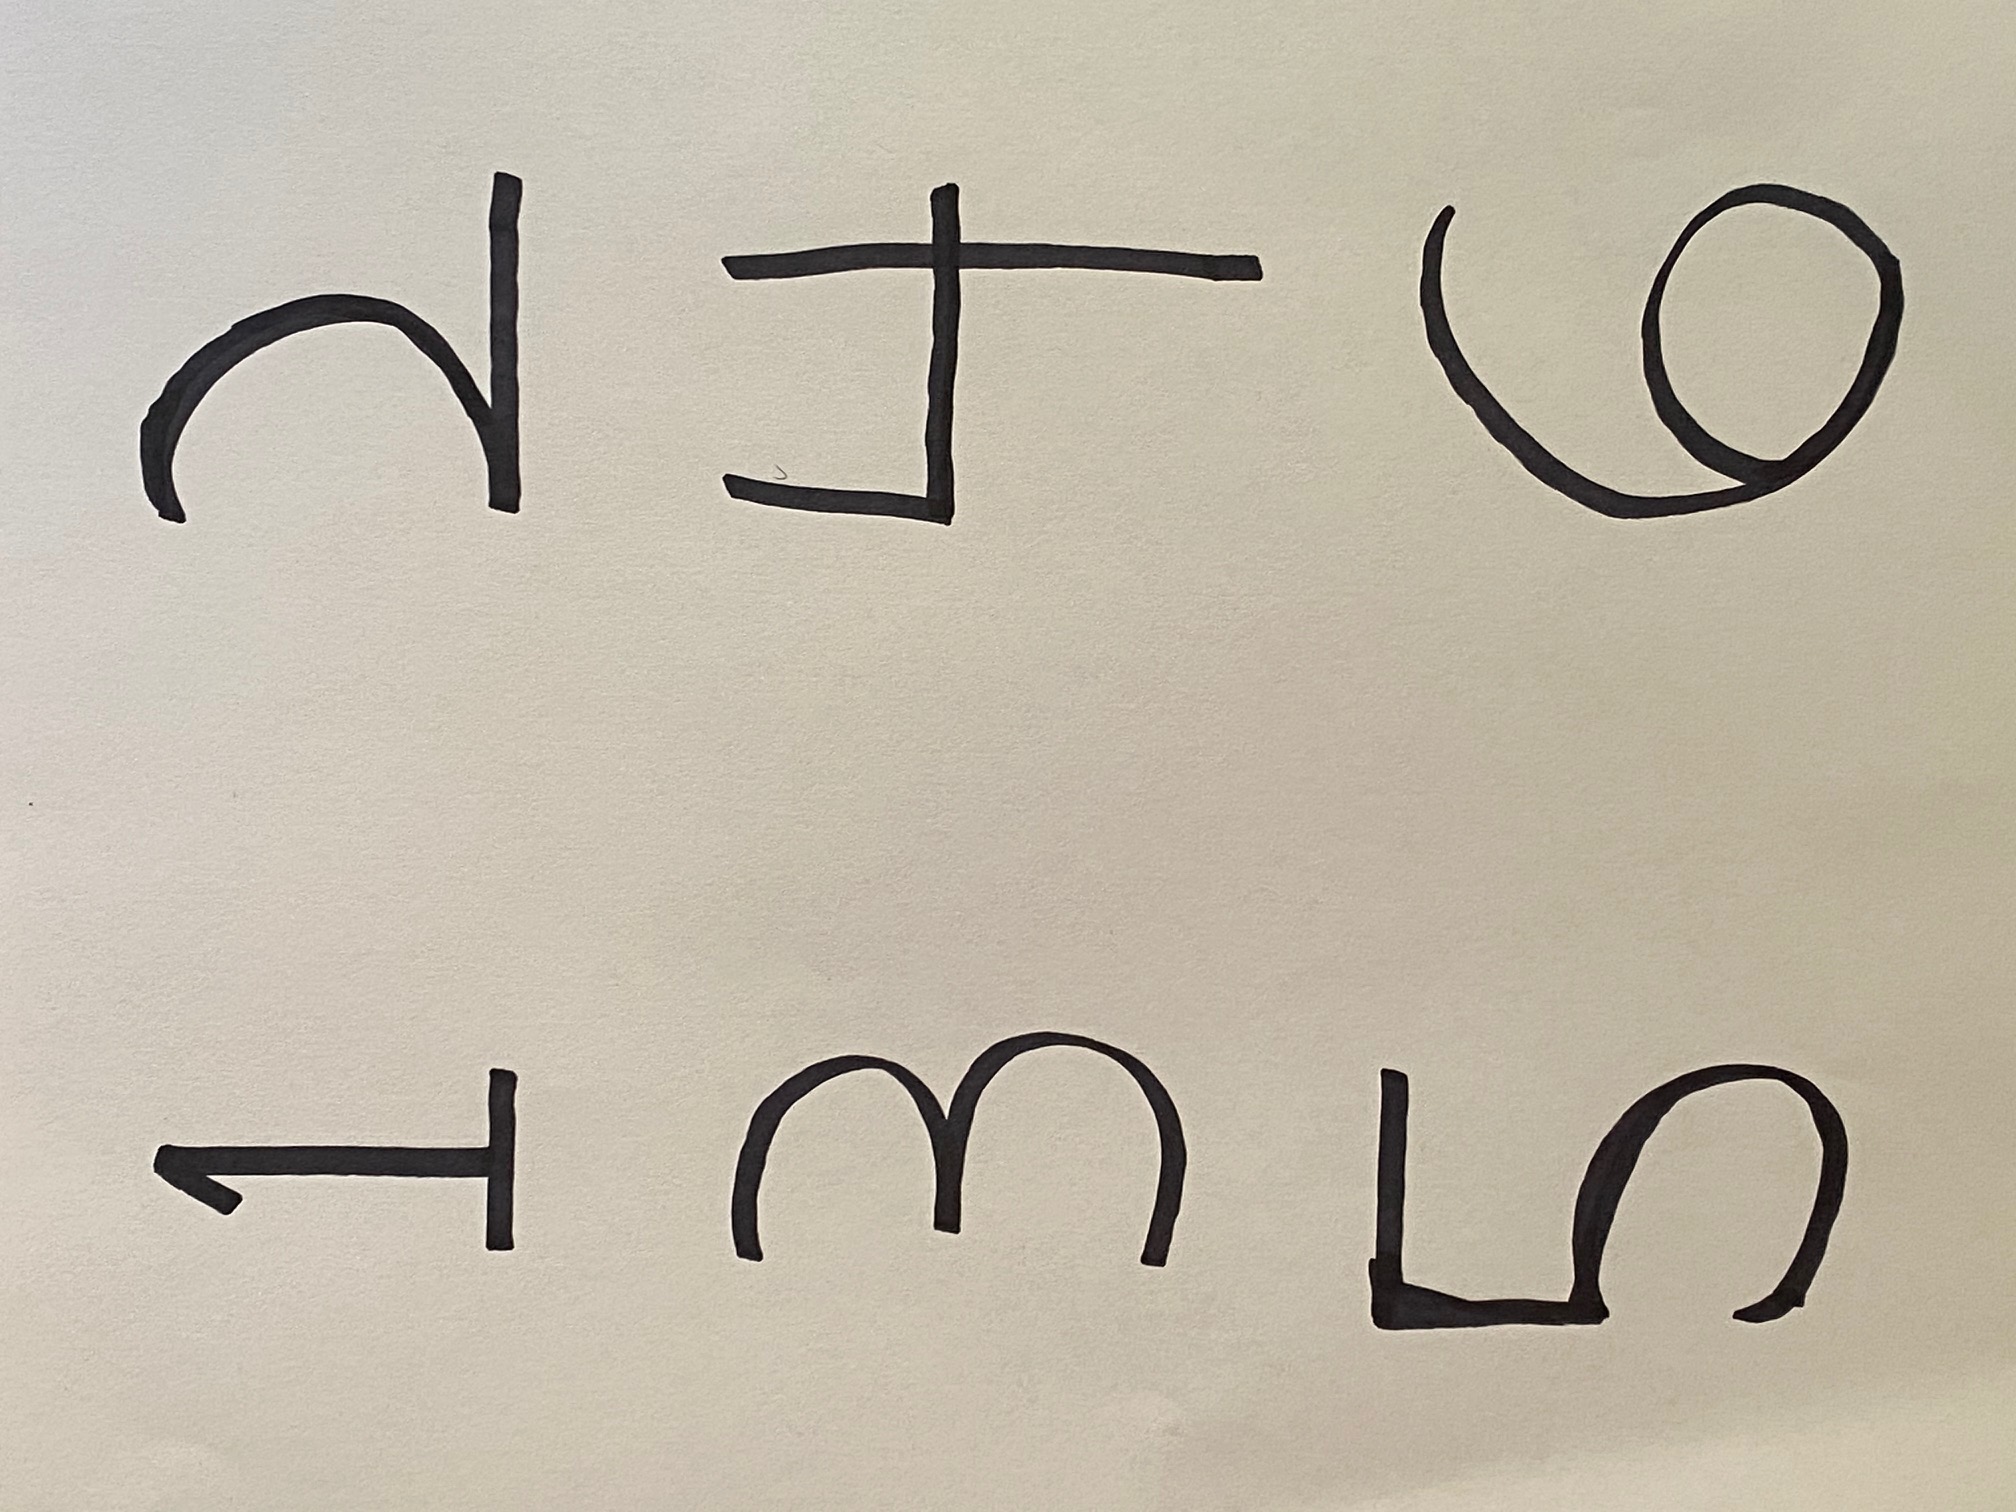 1 2
3 4
5 6